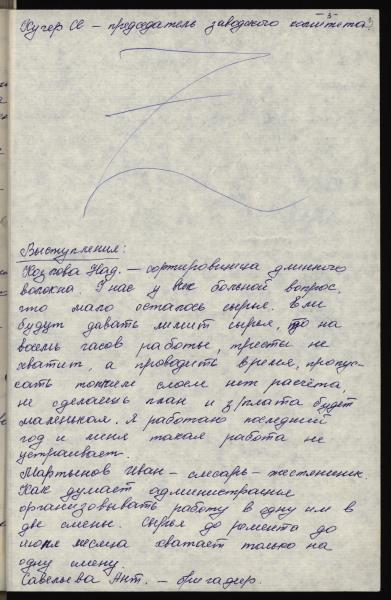 - 3 -
Кугер М – председатель заводского комитета.
Выступления:
Козлова Над. – сортировщица длинного
волокна. У нас у всех больной вопрос,
что мало осталось сырья. Если
будут давать лимит сырья, то на
восемь часов работы, тресты не
хватит, а проводить время, пропус-
кать тонким слоем нет расчёта,
не сделаешь план и з/плата будет
маленькая. Я работаю последний
год и меня такая работа не
устраивает.
Мартынов Иван – слесарь-жестянщик.
Как думает администрация
организовывать работу в одну или в
две смены. Сырья до ремонта до
июля месяца хватает только на
одну смену.
Савельева Ант. – бригадир.